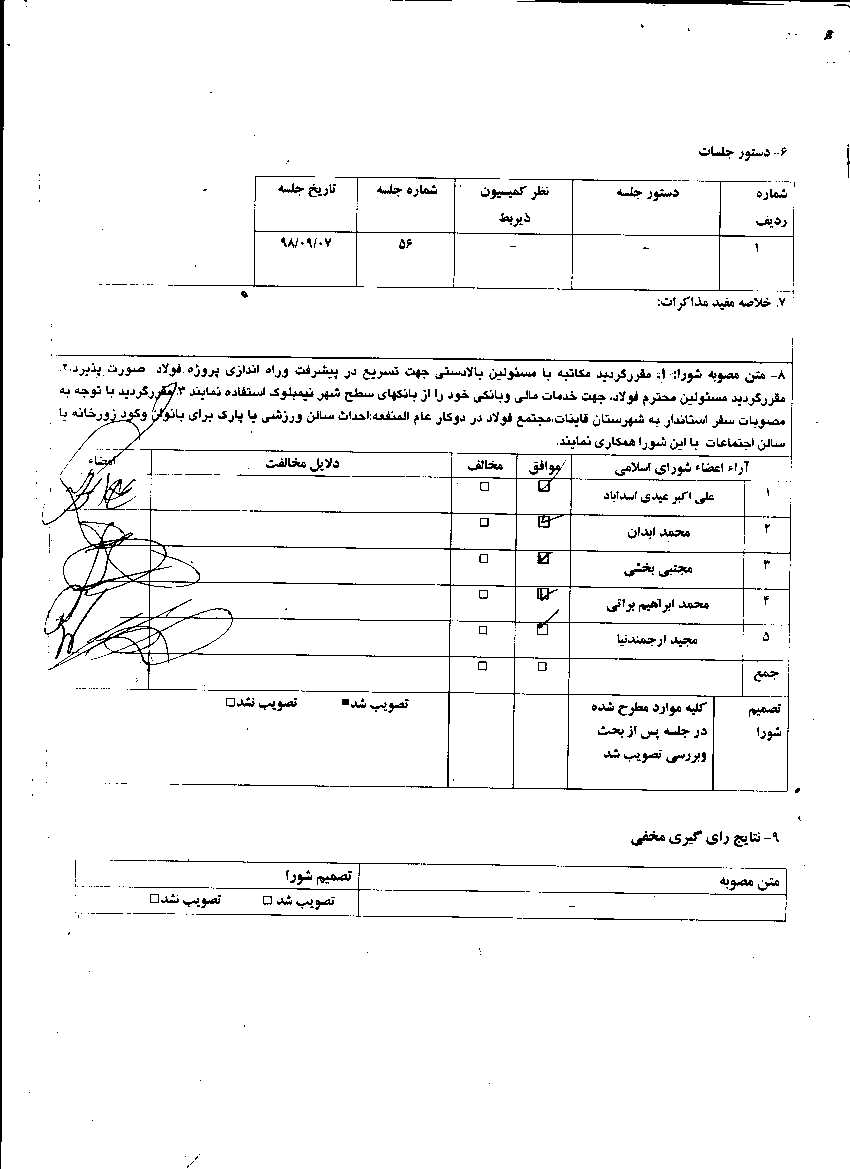 ۶- دستور جلسات
شماره ردیف | دستور جلسه | نظر کمیسیون ذیربط | شماره جلسه | تاریخ جلسه
۱ | - | - | ۵۶ | ۹۸/۰۹/۰۷
۷. خلاصه مفید مذاکرات:
۸- متن مصوبه شورا: ۱. مقررگردید مکاتبه با مسئولین بالادستی جهت تسریع در پیشرفت وراه اندازی پروژه فولاد صورت پذیرد.۲.
مقررگردید مسئولین محترم فولاد، جهت خدمات مالی وبانکی خود را از بانکهای سطح شهر نیمبلوک استفاده نمایند ۳.مقررگردید با توجه به
مصوبات سفر استاندار به شهرستان قاینات،مجتمع فولاد در دوکار عام المنفعه:احداث سالن ورزشی یا پارک برای بانوان وگود زورخانه یا
سالن اجتماعات با این شورا همکاری نمایند.
آراء اعضاء شورای اسلامی | موافق | مخالف | دلایل مخالفت | امضاء
۱ | علی اکبر عبدی اسدآباد
۲ | محمد ابدان
۳ | مجتبی بخشی
۴ | محمد ابراهیم براتی
۵ | مجید ارجمندنیا
جمع
تصمیم شورا | کلیه موارد مطرح شده در جلسه پس از بحث وبررسی تصویب شد | تصویب شد■ | تصویب نشد□
۹- نتایج رای گیری مخفی
متن مصوبه | تصمیم شورا
- | تصویب شد □ | تصویب نشد□